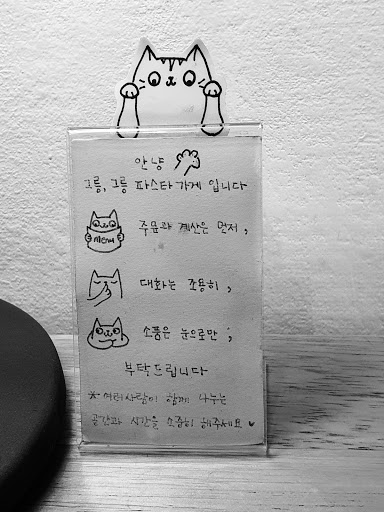 안냥
그릉, 그릉 파스타 가게 입니다
menu
주문과 계산은 먼저,
대화는 조용히,
소품은 눈으로만;
부탁드립니다
* 여러사람이 함께 나누는
공간과 시간을 소중히 해주세요 ♥